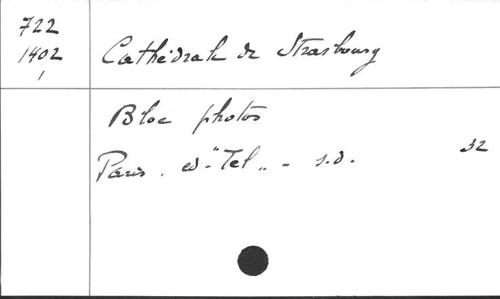 722
1402
1
Cathédrale de Strasbourg
Bloc photos
Paris. ed "Tel" - s.d.
32